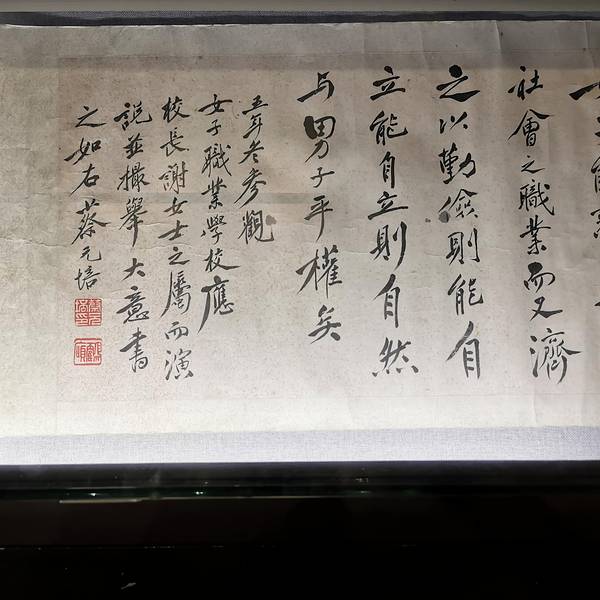 社會之職業而又濟
之以勤儉則能自
立能自立則自然
与男子平權矣
五年冬參觀
女子職業學校應
校長謝女士之屬而演
說並撮舉大意書
之如右蔡元培